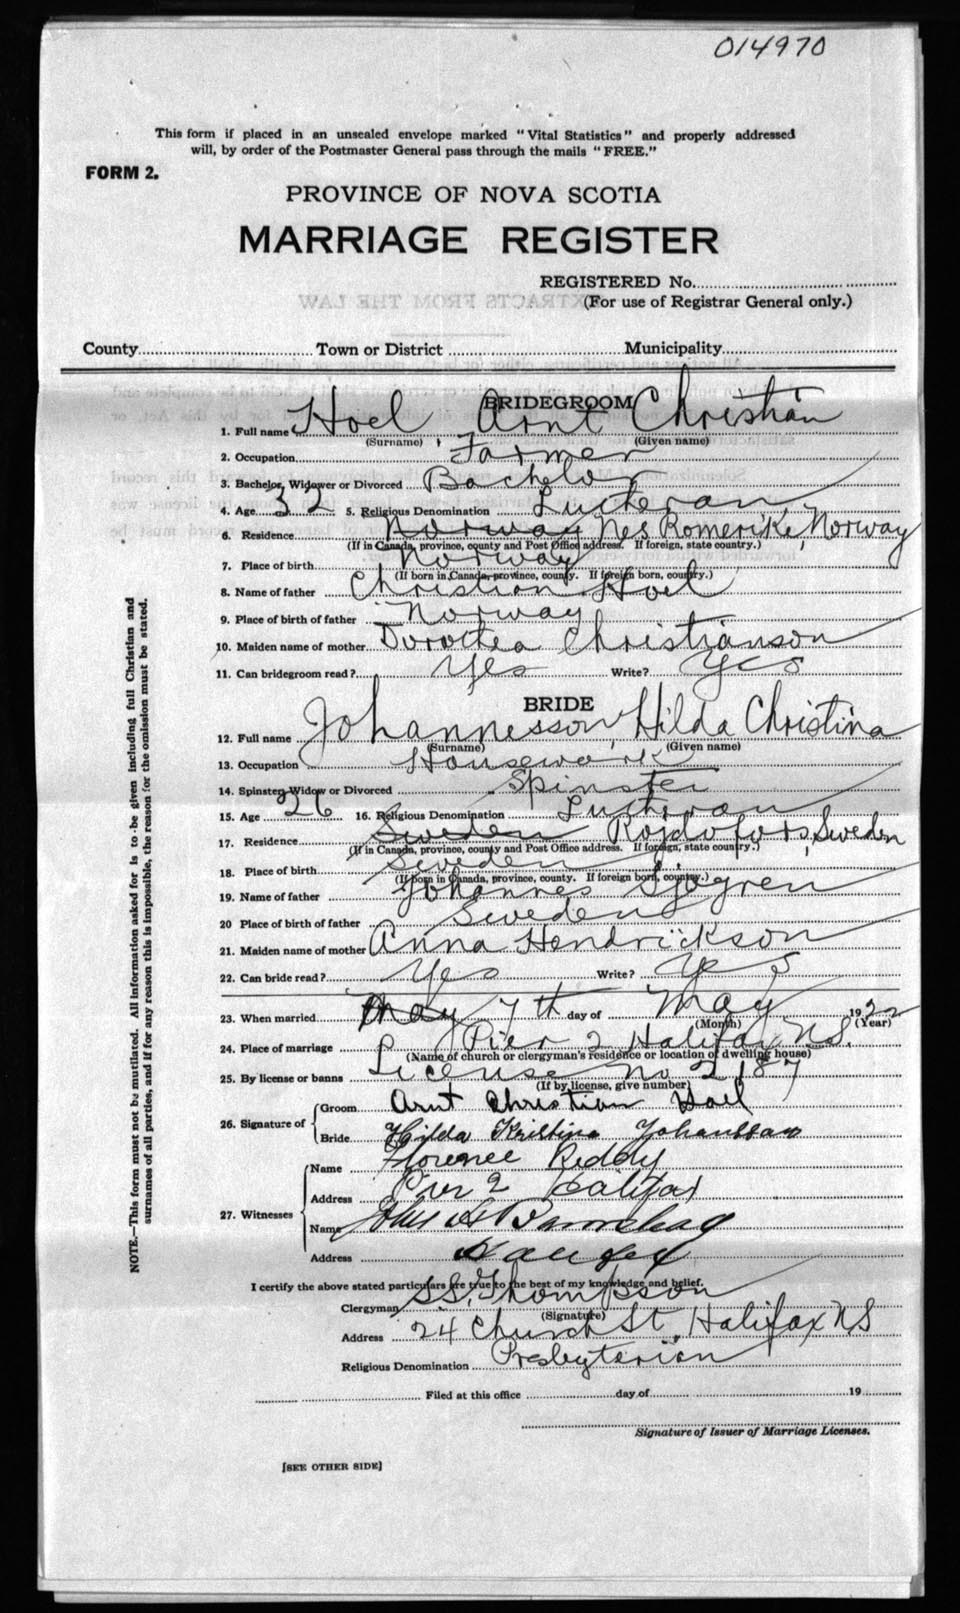 014970
This form if placed in an unsealed envelope marked "Vital Statistics" and properly addressed
will, by order of the Postmaster General pass through the mails "FREE."
FORM 2.
PROVINCE OF NOVA SCOTIA
MARRIAGE REGISTER
REGISTERED No.
(For use of Registrar General only.)
EXTRACTS FROM THE LAW
County Town or District Municipality
BRIDEGROOM
1. Full name Hoel Arnt Christian
(Surname) (Given name)
2. Occupation Farmer
3. Bachelor, Widower or Divorced Bachelor
4. Age 32 5. Religious Denomination Lutheran
6. Residence Norway Nes Romerike, Norway
(If in Canada, province, county and Post Office address. If foreign, state country.)
7. Place of birth Norway
(If born in Canada, province, county. If foreign born, country.)
8. Name of father Christian Hoel
9. Place of birth of father Norway
10. Maiden name of mother Dorothea Christianson
11. Can bridegroom read? Yes Write? Yes
BRIDE
12. Full name Johannesson, Hilda Christina
(Surname) (Given name)
13. Occupation Housework
14. Spinster, Widow or Divorced Spinster
15. Age 26 16. Religious Denomination Lutheran
17. Residence Sweden Rojdofors, Sweden
(If in Canada, province, county and Post Office address. If foreign, state country.)
18. Place of birth Sweden
(If born in Canada, province, county. If foreign born, country.)
19. Name of father Johannes Sjogren
20 Place of birth of father Sweden
21. Maiden name of mother Anna Hendrickson
22. Can bride read? Yes Write? Yes
23. When married May 7th day of May 1922
(Month) (Year)
24. Place of marriage Pier 2 Halifax N.S.
(Name of church or clergyman's residence or location of dwelling house)
25. By license or banns License No 2187
(If by license, give number)
26. Signature of Groom Arnt Christian Hoel
Bride Hilda Kristina Johansson
27. Witnesses Name Florence Reddy
Address Pier 2 Halifax
Name John
Address Halifax
I certify the above stated particulars are true to the best of my knowledge and belief.
Clergyman S.S. Thompson
(Signature)
Address 24 Church St, Halifax NS
Religious Denomination Presbyterian
Filed at this office day of 19
Signature of Issuer of Marriage Licenses.
[SEE OTHER SIDE]
NOTE.—This form must not be mutilated. All information asked for is to be given including full Christian and
surnames of all parties, and if for any reason this is impossible, the reason for the omission must be stated.